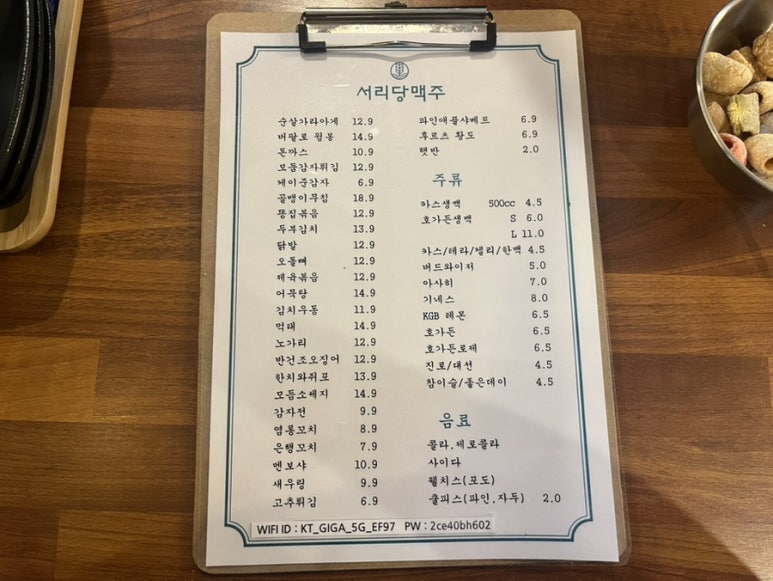 서리당맥주
순살가라아게 12.9
버팔로 윙봉 14.9
돈까스 10.9
모둠감자튀김 12.9
케이준감자 6.9
골뱅이무침 18.9
똥집볶음 12.9
두부김치 13.9
닭발 12.9
오돌뼈 12.9
제육볶음 12.9
어묵탕 14.9
김치우동 11.9
먹태 14.9
노가리 12.9
반건조오징어 12.9
한치와쥐포 13.9
모듬소세지 14.9
감자전 9.9
염통꼬치 8.9
은행꼬치 7.9
멘보샤 10.9
새우링 9.9
고추튀김 6.9
파인애플샤베트 6.9
후르츠 황도 6.9
햇반 2.0
주류
카스생맥 500cc 4.5
호가든생맥 S 6.0
L 11.0
카스/테라/켈리/한맥 4.5
버드와이저 5.0
아사히 7.0
기네스 8.0
KGB 레몬 6.5
호가든 6.5
호가든로제 6.5
진로/대선 4.5
참이슬/좋은데이 4.5
음료
콜라,제로콜라
사이다
웰치스(포도)
쿨피스(파인,자두) 2.0
WIFI ID : KT_GIGA_5G_EF97 PW : 2ce40bh602